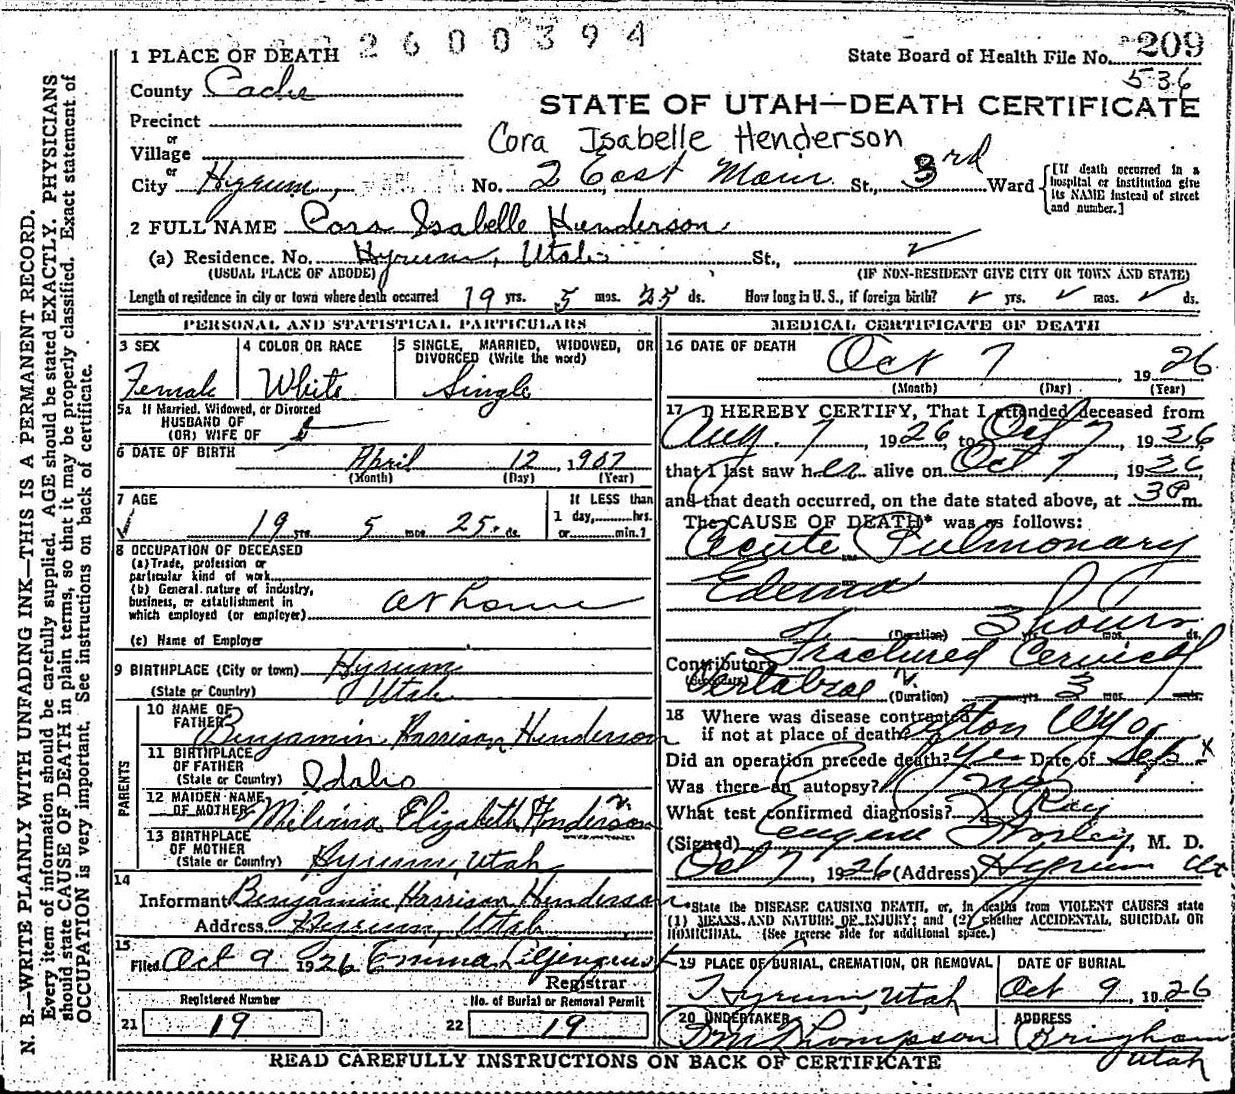 2600394
1 PLACE OF DEATH
State Board of Health File No. 209
536
County Cache
STATE OF UTAH—DEATH CERTIFICATE
Precinct
Cora Isabelle Henderson
or
Village
or
City Hyrum, No. 2 East Main St., 3rd Ward
[If death occurred in a hospital or institution give its NAME instead of street and number.]
2 FULL NAME Cora Isabelle Henderson
(a) Residence. No. Hyrum, Utah St.,
(USUAL PLACE OF ABODE) (IF NON-RESIDENT GIVE CITY OR TOWN AND STATE)
Length of residence in city or town where death occurred 19 yrs. 5 mos. 25 ds. How long in U. S., if foreign birth? yrs. mos. ds.
PERSONAL AND STATISTICAL PARTICULARS
3 SEX
Female
4 COLOR OR RACE
White
5 SINGLE, MARRIED, WIDOWED, OR
DIVORCED (Write the word)
Single
5a If Married, Widowed, or Divorced
HUSBAND OF
(OR) WIFE OF
6 DATE OF BIRTH April 12, 1907
(Month) (Day) (Year)
7 AGE
19 yrs 5 mos 25 ds.
If LESS than
1 day, hrs.
or min.?
8 OCCUPATION OF DECEASED
(a) Trade, profession or
particular kind of work
(b) General nature of industry,
business, or establishment in
which employed (or employer) at home
(c) Name of Employer
9 BIRTHPLACE (City or town) Hyrum
(State or Country) Utah
PARENTS
10 NAME OF
FATHER Benjamin Harrison Henderson
11 BIRTHPLACE
OF FATHER
(State or Country) Idaho
12 MAIDEN NAME
OF MOTHER Elizabeth
13 BIRTHPLACE
OF MOTHER
(State or Country) Hyrum, Utah
14
Informant Benjamin Harrison Henderson
Address Hyrum, Utah
15
Filed Oct 9 1926 Emma Liljenquist
Registrar
Registered Number No. of Burial or Removal Permit
21 19 22 19
MEDICAL CERTIFICATE OF DEATH
16 DATE OF DEATH
Oct 7, 1926
(Month) (Day) (Year)
17 I HEREBY CERTIFY, That I attended deceased from
Aug. 7 1926 to Oct 7, 1926
that I last saw her alive on Oct 7, 1926,
and that death occurred, on the date stated above, at 3 m.
The CAUSE OF DEATH* was as follows:
Acute Pulmonary
Edema
(Duration) 3 hours yrs. mos. ds.
Contributory Fractured Cervical
Vertebrae (Duration) yrs. 3 mos.
18 Where was disease contracted
if not at place of death? Wyo
Did an operation precede death? Yes Date of Sep
Was there an autopsy? no
What test confirmed diagnosis? X Ray
(Signed) Eugene Worley, M. D.
Oct 7, 1926 (Address) Hyrum Ut
*State the DISEASE CAUSING DEATH, or, in deaths from VIOLENT CAUSES state
(1) MEANS AND NATURE OF INJURY; and (2) whether ACCIDENTAL, SUICIDAL OR
HOMICIDAL. (See reverse side for additional space.)
19 PLACE OF BURIAL, CREMATION, OR REMOVAL
Hyrum, Utah
DATE OF BURIAL
Oct 9, 1926
20 UNDERTAKER
Thompson
ADDRESS
Brigham
Utah
READ CAREFULLY INSTRUCTIONS ON BACK OF CERTIFICATE
N. B.—WRITE PLAINLY WITH UNFADING INK—THIS IS A PERMANENT RECORD.
Every item of information should be carefully supplied. AGE should be stated EXACTLY. PHYSICIANS
should state CAUSE OF DEATH in plain terms, so that it may be properly classified. Exact statement of
OCCUPATION is very important. See instructions on back of certificate.